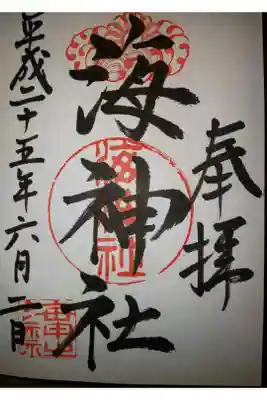 奉拝
海神社
海神社
平成二十五年六月二日